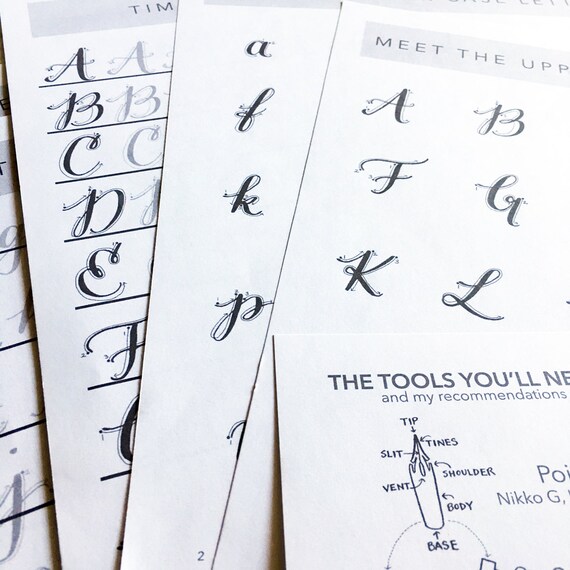 TIM
A A A
B B B
C C
D
E
F
a
f
k
p
2
MEET THE UPP
A B
F G
K L
THE TOOLS YOU'LL NE
and my recommendations
TIP
TINES
SLIT
SHOULDER
VENT
BODY
BASE
Poi
Nikko G,